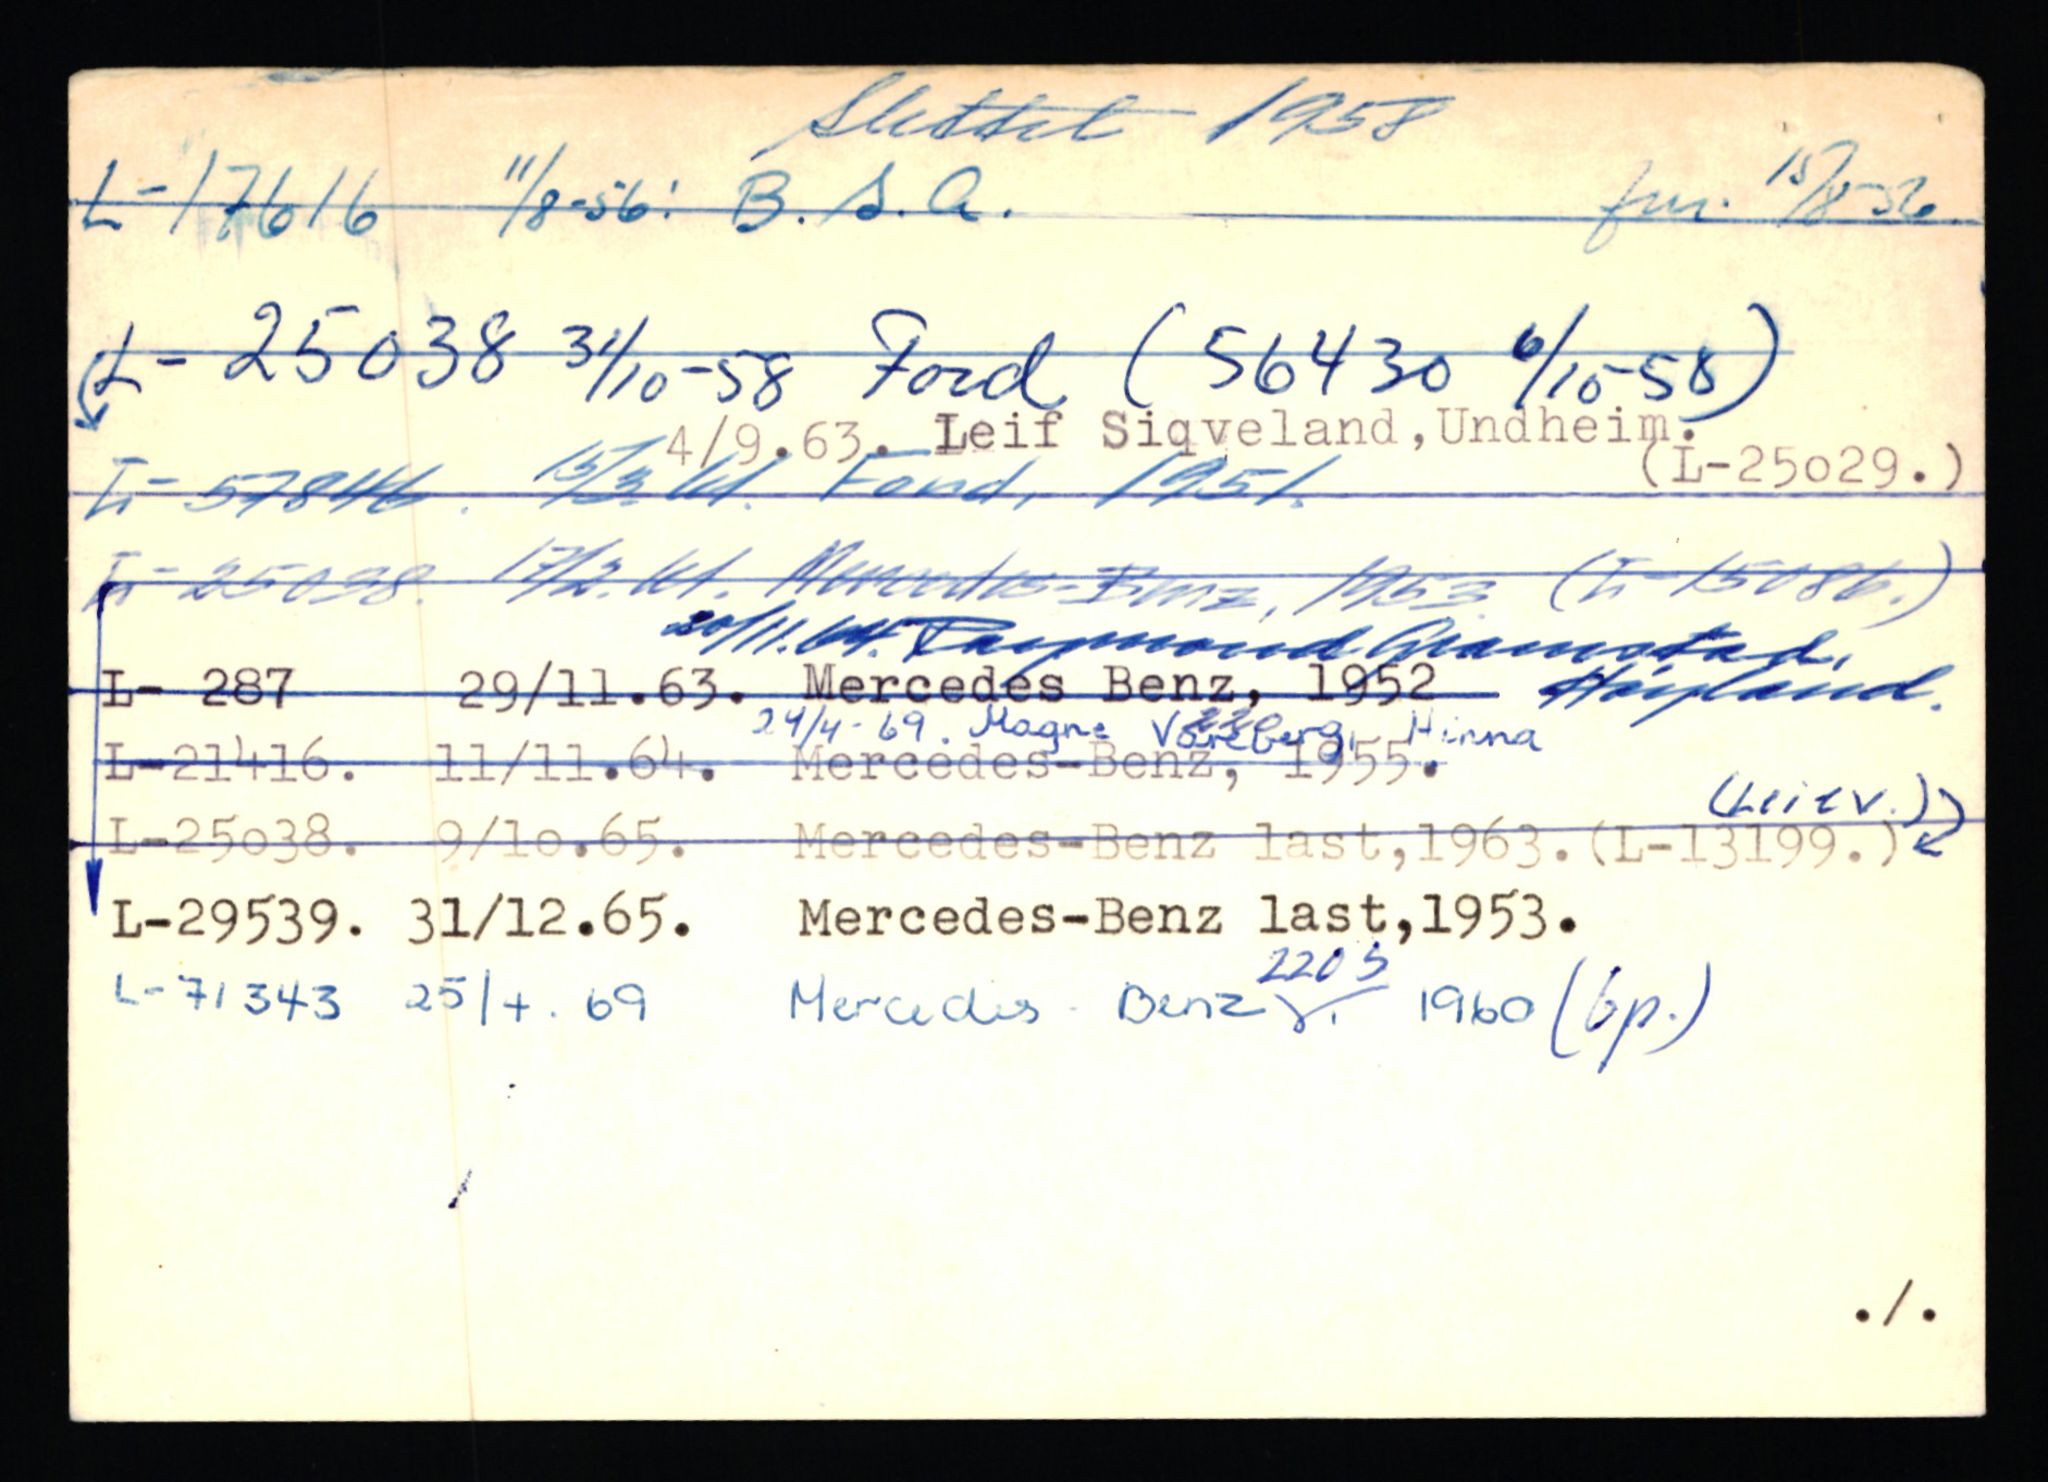 Slettet 1958
L-17616 11/8-56: B.S.A. fur. 15/8-56
L- 25038 31/10-58 Ford (56430 6/10-58)
4/9.63. Leif Siqveland,Undheim.
(L-25029.)
L-57846. 15/3.61. Ford, 1951.
L-25038. 17/2.61. Mercedes-Benz, 1953 (L-15086.)
20/11.64. Raymond Gramstad,
L- 287 29/11.63. Mercedes Benz, 1952 Høyland.
24/4-69. Magne Voreberg, Hinna
L-21416. 11/11.64. Mercedes-Benz, 1955.
(Leiev.)
L-25038. 9/10.65. Mercedes-Benz last,1963.(L-13199.)
L-29539. 31/12.65. Mercedes-Benz last,1953.
220 S
L-71343 25/4. 69 Mercedes - Benz 1960 (bp.)
./.